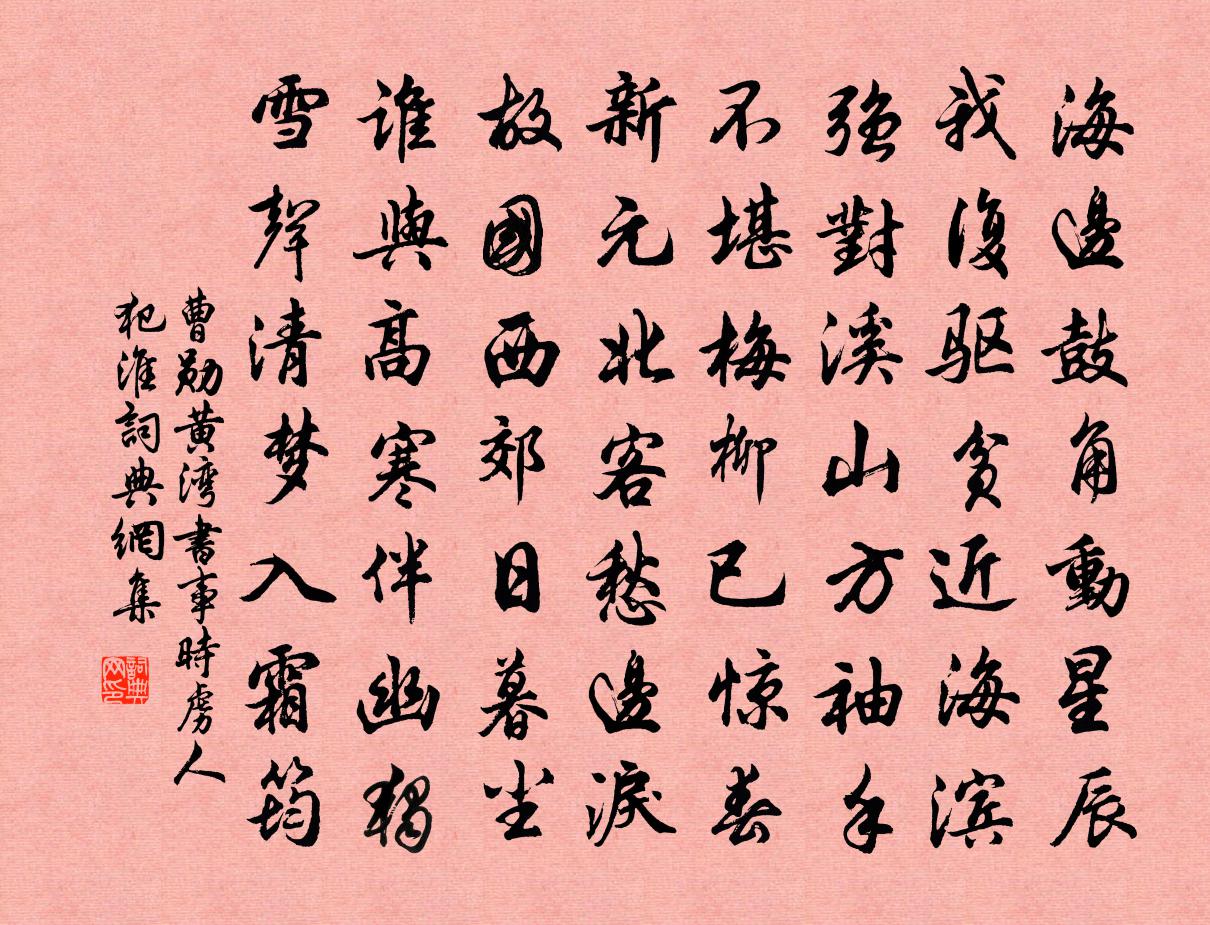 海邊鼓角動星辰
我復驱貧近海滨
强對溪山方袖手
不堪梅柳已惊春
新元北客愁邊淚
故國西郊日暮尘
谁與高寒伴幽獨
雪聲清梦入霜筠
曹勋黄湾書事時虏人
犯淮詞典網集
詞典网印